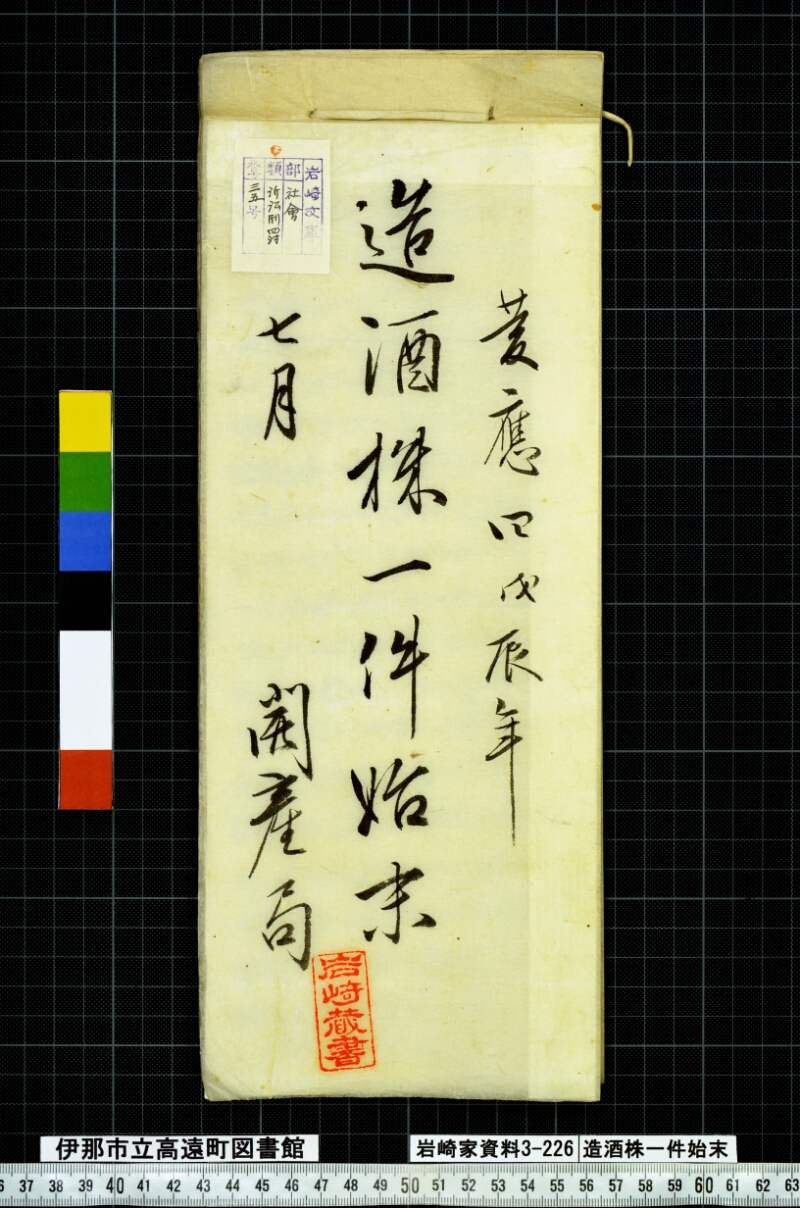 慶應四戊辰年
造酒株一件始末
七月
開産局
岩崎文庫
部 社會
類
三五号
岩崎蔵書
伊那市立高遠町図書館
岩崎家資料3-226 造酒株一件始末
37 38 39 40 41 42 43 44 45 46 47 48 49 50 51 52 53 54 55 56 57 58 59 60 61 62 63